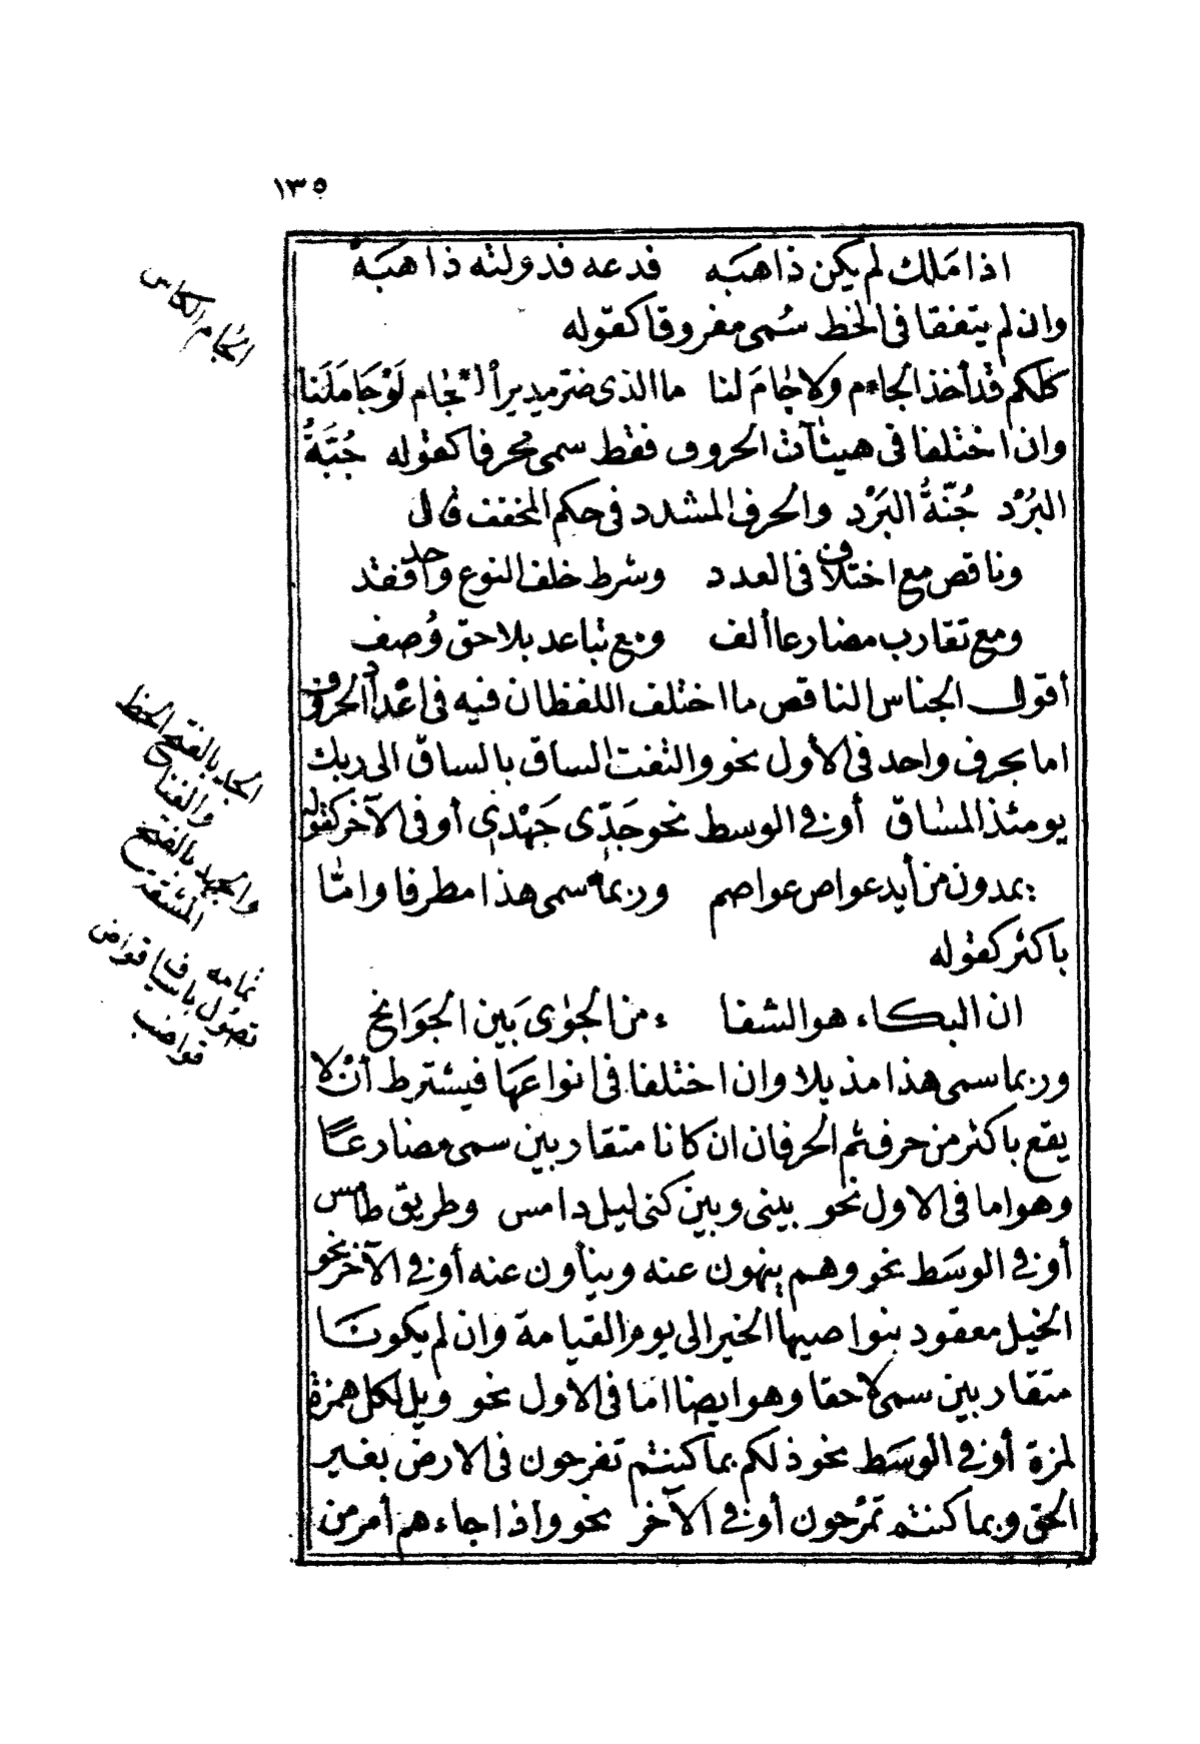 ١٣٥
اذا مَلك لم يكن ذا هبَه     فدعه فدولته ذاهبَهْ
وان لم يتفقا فى الخط سُمى مفروقا كقوله
كلكم قد أخذ الجام ولا جامَ لنا   ما الذى ضر مدير ألجام لَوْ جَامَلَنا
وان اختلفا فى هيئات الحروف فقط سمى محرفا كقوله جُبَّةُ
البُرْد جُنّةُ البَرْد والحرف المشدد فى حكم المخفف قال
وناقص مع اختلاف فى العدد     وشرط خلف النوع واحد فقد
ومع تقارب مضارعا ألف     ومع تباعد بلاحق وُصف
أقول الجناس الناقص ما اختلف اللفظان فيه فى اعْداد الحروف
اما بحرف واحد فى الأول نحو والتفت الساق بالساق الى ربك
يومئذ المساق أو فى الوسط نحو جَدّى جَهْدى أو فى الآخر كقوله
يمدون من أيد عواص عواصم     وربما سمى هذا مطرفا وامّا
باكثر كقوله
ان البكاء هو الشفا     ء من الجوٰى بَين الجوَانح
وربما سمى هذا مذيلا وان اختلفا فى انواعهَا فيشترط أنْ لا
يقع باكثر من حرف ثم الحرفان ان كانا متقاربين سمى مضارعًا
وهو اما فى الاول نحو بينى وبين كنى ليل دامس وطريق طامس
أو فى الوسَط نحو وهم ينهون عنه وينأون عنه أو فى الآخر نحو
الخيل معقود بنواصيها الخير الى يوم القيامة وان لم يكونَا
متقاربين سمى لاحقا وهو ايضا امّا فى الأول نحو ويل لكل همزة
لمزة أو فى الوسَط نحو ذلكم بما كنتم تفرحون فى الارض بغير
الحق وبما كنتم تمرْحون أو فى الآخر نحو واذا جاءهم أمر من
الجَام الكاس
الجد بالفتح الحظ
والغنا
والجهد بالفتح
المشقة
تمامه
تصُول باسياف قواض
قواضب